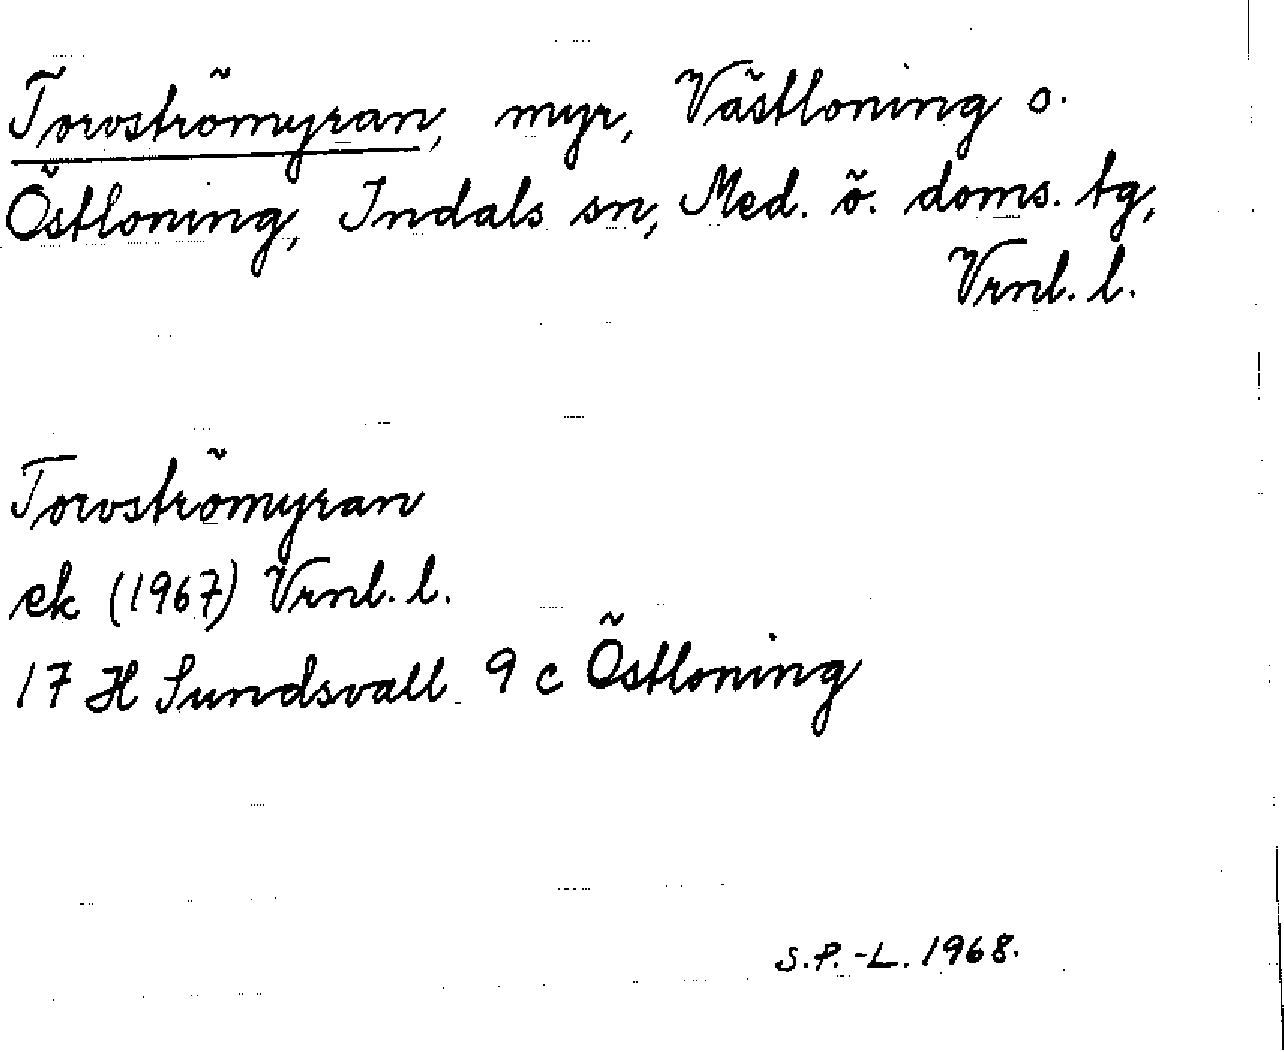 Torvströmyran, myr, Västloning o.
Östloning, Indals sn, Med. ö. doms. tg,
Vrnl. l.
Torvströmyran
ek (1967) Vrnl. l.
17 H Sundsvall 9 c Östloning
S.P.-L. 1968.